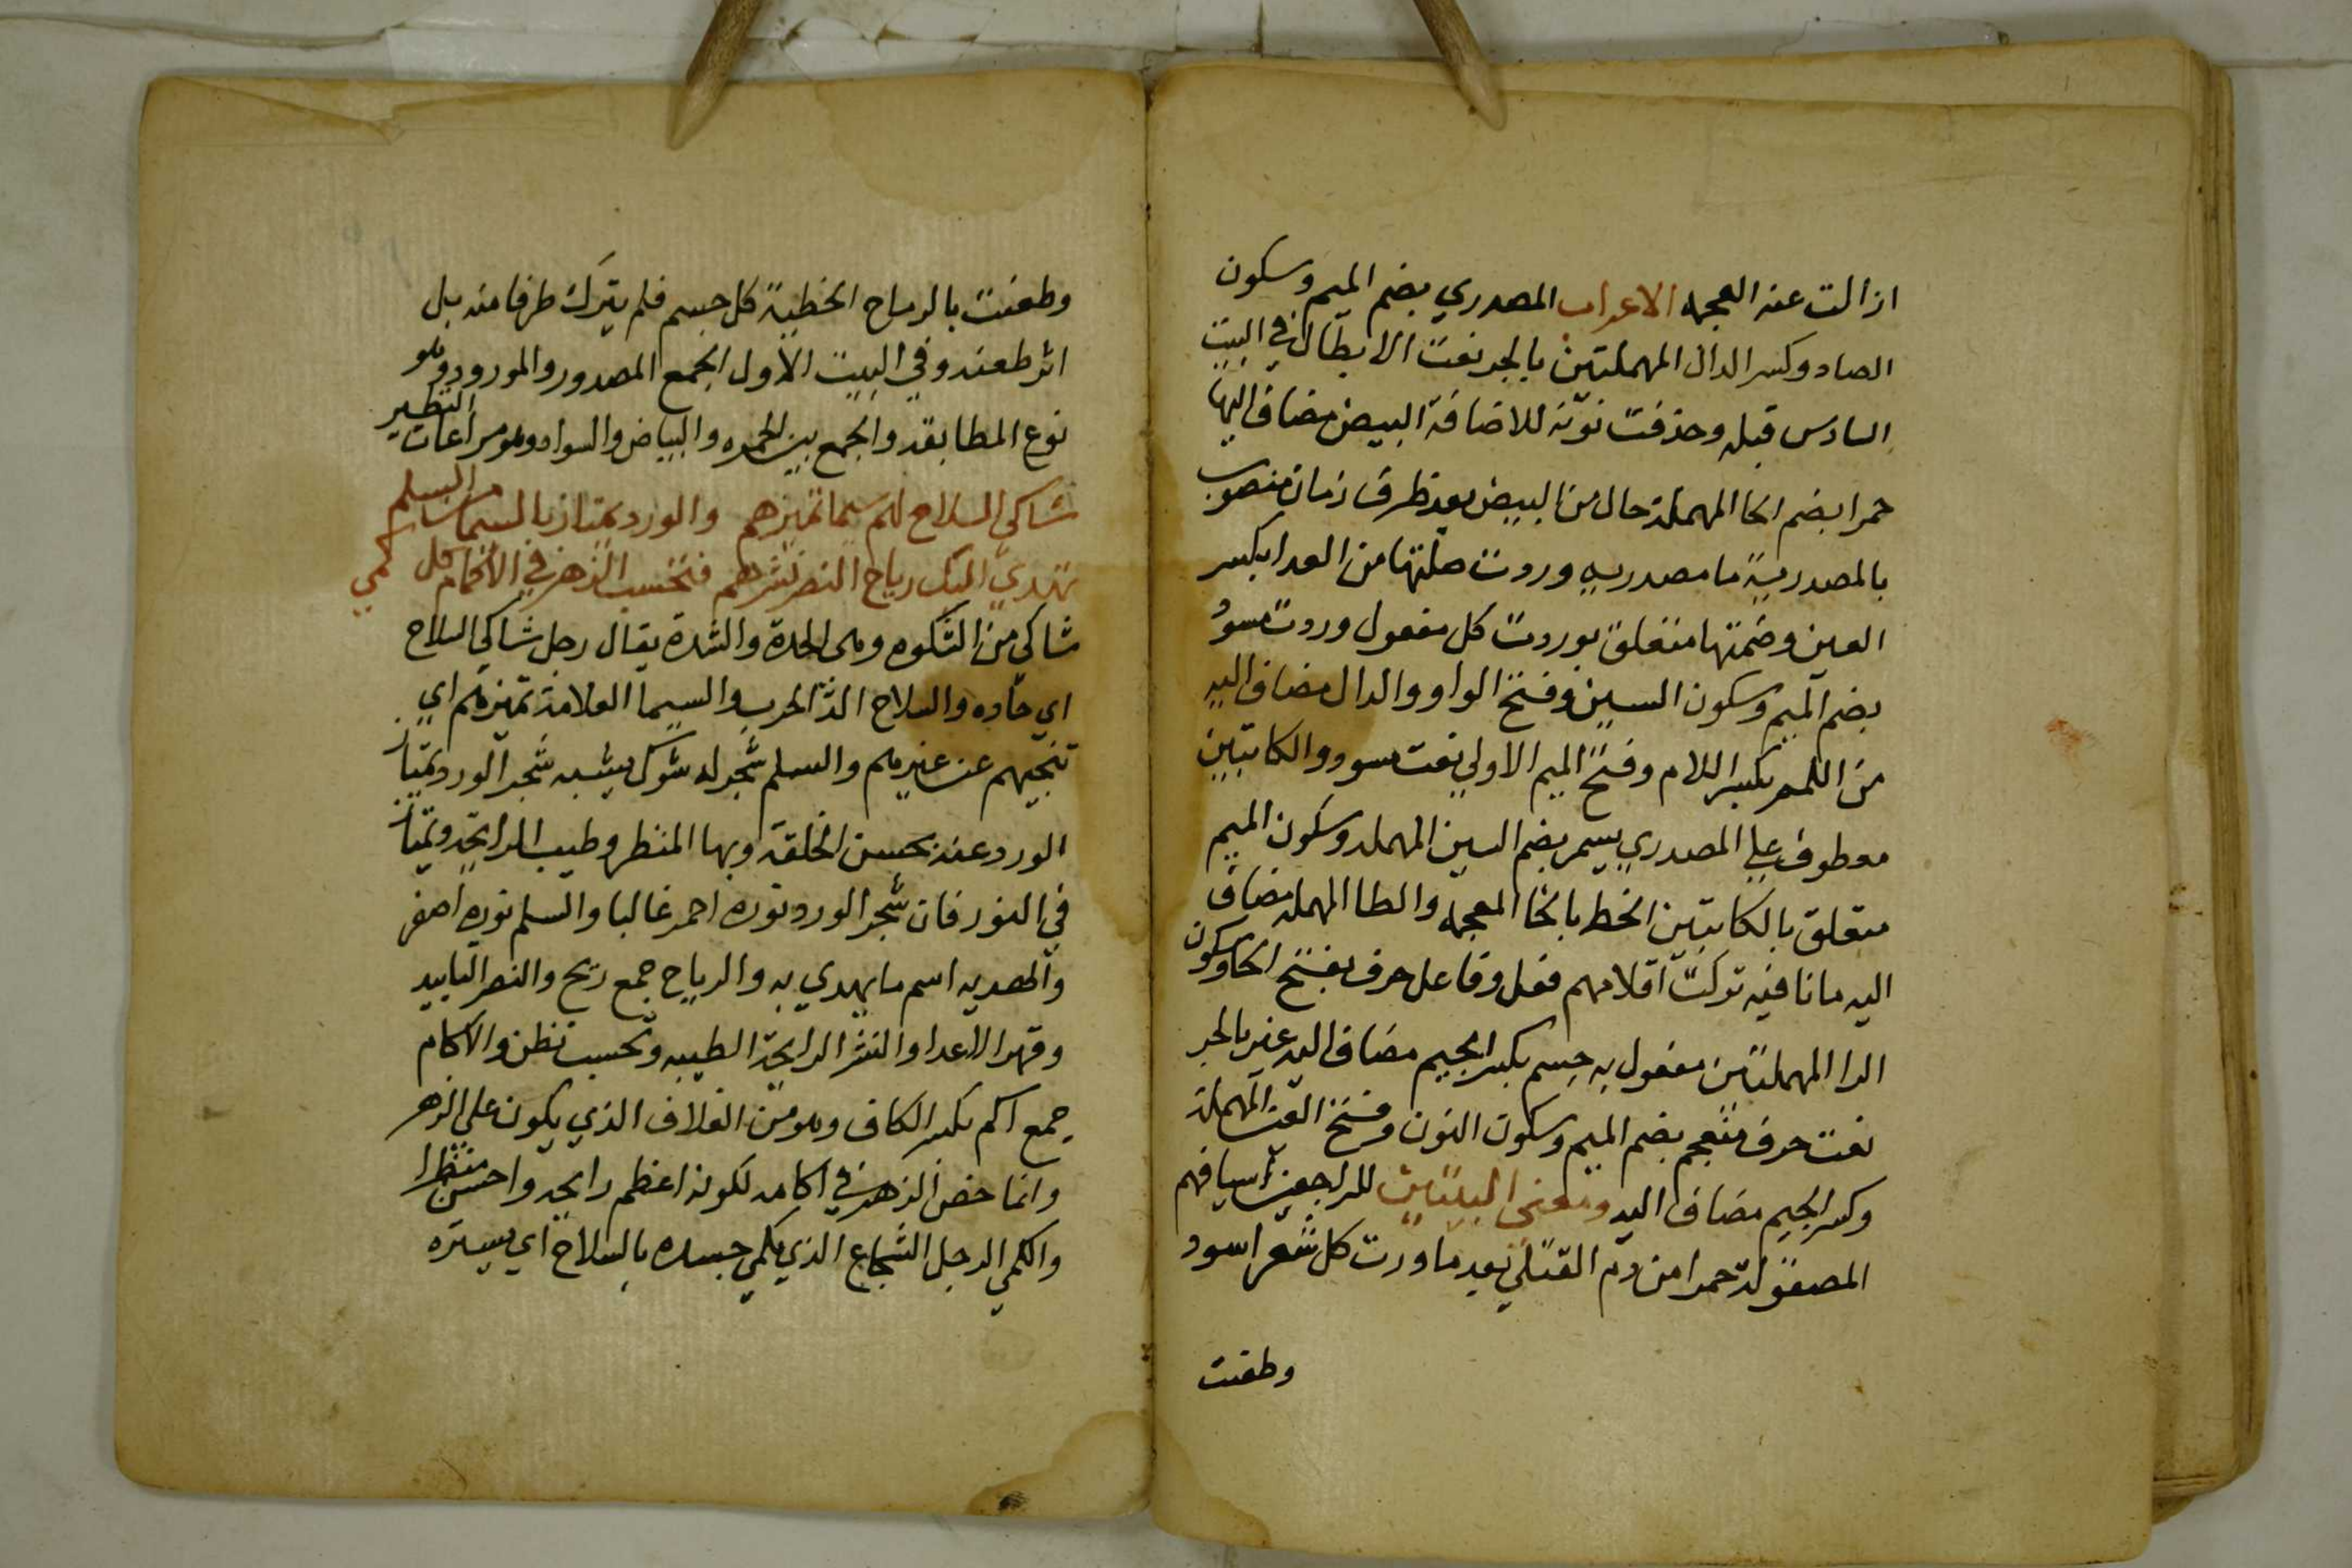 ازالت عنه العجمه الاعراب المصدري بضم الميم وسكون
الصاد وكسر الدال المهملتين بالجر نعت الابطال في البيت
السادس قبله وحذفت نونه للاضافة البيض مضاف اليها
حمرا بضم الحا المهملة حال من البيض بعد ظرف زمان منصوب
بالمصدرية ما مصدريه وردت صلتها من العدا بكسر
العين وضمتها متعلق بوردت كل مفعول وردت مسودٍ
بضم الميم وسكون السين وفتح الواو والدال مضاف اليه
من اللمم بكسر اللام وفتح الميم الاولي نعت مسود والكاتبين
معطوف علي المصدري بسمر بضم السين المهمله وسكون الميم
متعلق بالكاتبين الخط بالخا المعجمه والطا المهمله مضاف
اليه ما نافيه تركت اقلامهم فعل وفاعل حرف بفتح الحا وسكون
الرا المهملتين مفعول به جسم بكسر الجيم مضاف اليه غير بالجر
نعت حرف منعجم بضم الميم وسكون النون وفتح العين المهملة
وكسر الجيم مضاف اليه ومعني البيتين للراجعين اسيافهم
المصقولة حمرا من دم القتلي بعد ما وردت كل شعر اسود
وطعنت
وطعنت بالرماح الخطية كل جسم فلم يترك طرفا منه بل
اثر طعنه وفي البيت الاول الجمع المصدور والمورود وهو
نوع المطابقه والجمع بين الحمره والبياض والسواد وهو مراعات النظير
شاكي السلاح لهم سيما تميزهم والورد يمتاز بالسيما من السلم
تهدي اليك رياح النصر نشرهم فتحسب الزهر في الاكمام كل كمي
شاكي من الشكوه وهي الحدة والشدة يقال رجل شاكي السلاح
اي حاده والسلاح الة الحرب والسيما العلامة تميزهم اي
تنجيهم عن غيرهم والسلم شجر له شوك يشبه شجر الورد يمتاز
الورد عنه بحسن الخلقة وبها المنظر وطيب الرايحه ويمتاز
في النور فان شجر الورد نوره احمر غالبا والسلم نوره اصفر
والهديه اسم ما يهدي به والرياح جمع ريح والنصر التاييد
وقهر الاعدا والنشر الرايحة الطيبه وتحسب تظن والاكمام
جمع اكم بكسر الكاف وهو من الغلاف الذي يكون علي الزهر
وانما خص الزهر في اكامه لكونه اعظم رايحه واحسن منظرا
والكمي الرجل الشجاع الذي يكمي جسده بالسلاح اي يستره